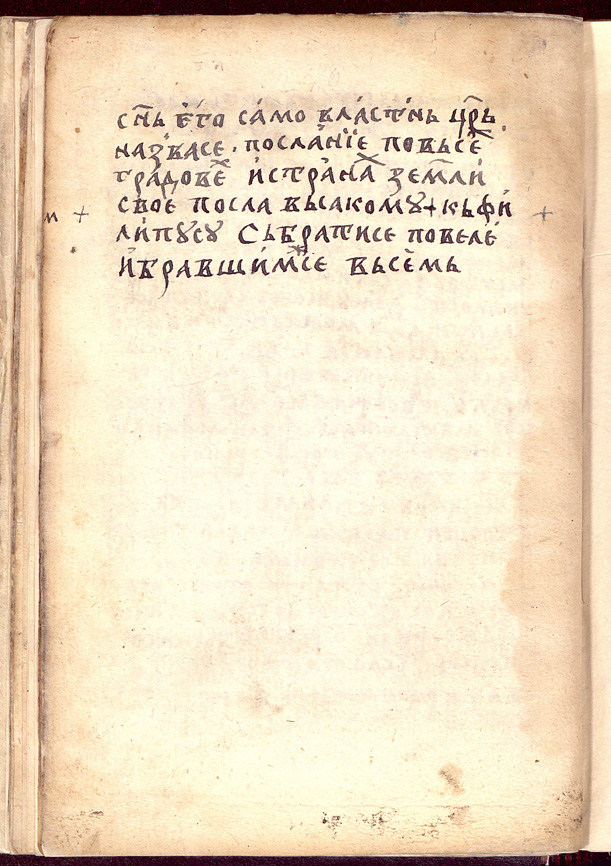 сн҃ь его само властⷩ҇ь цр҃ь
назвасе · посланїе повьсе
градове и страна земли
м + свое посла вьсакомꙋ + кьфи +
липꙋсꙋ Сьбратисе повеле
ибравшимсе вьсемь